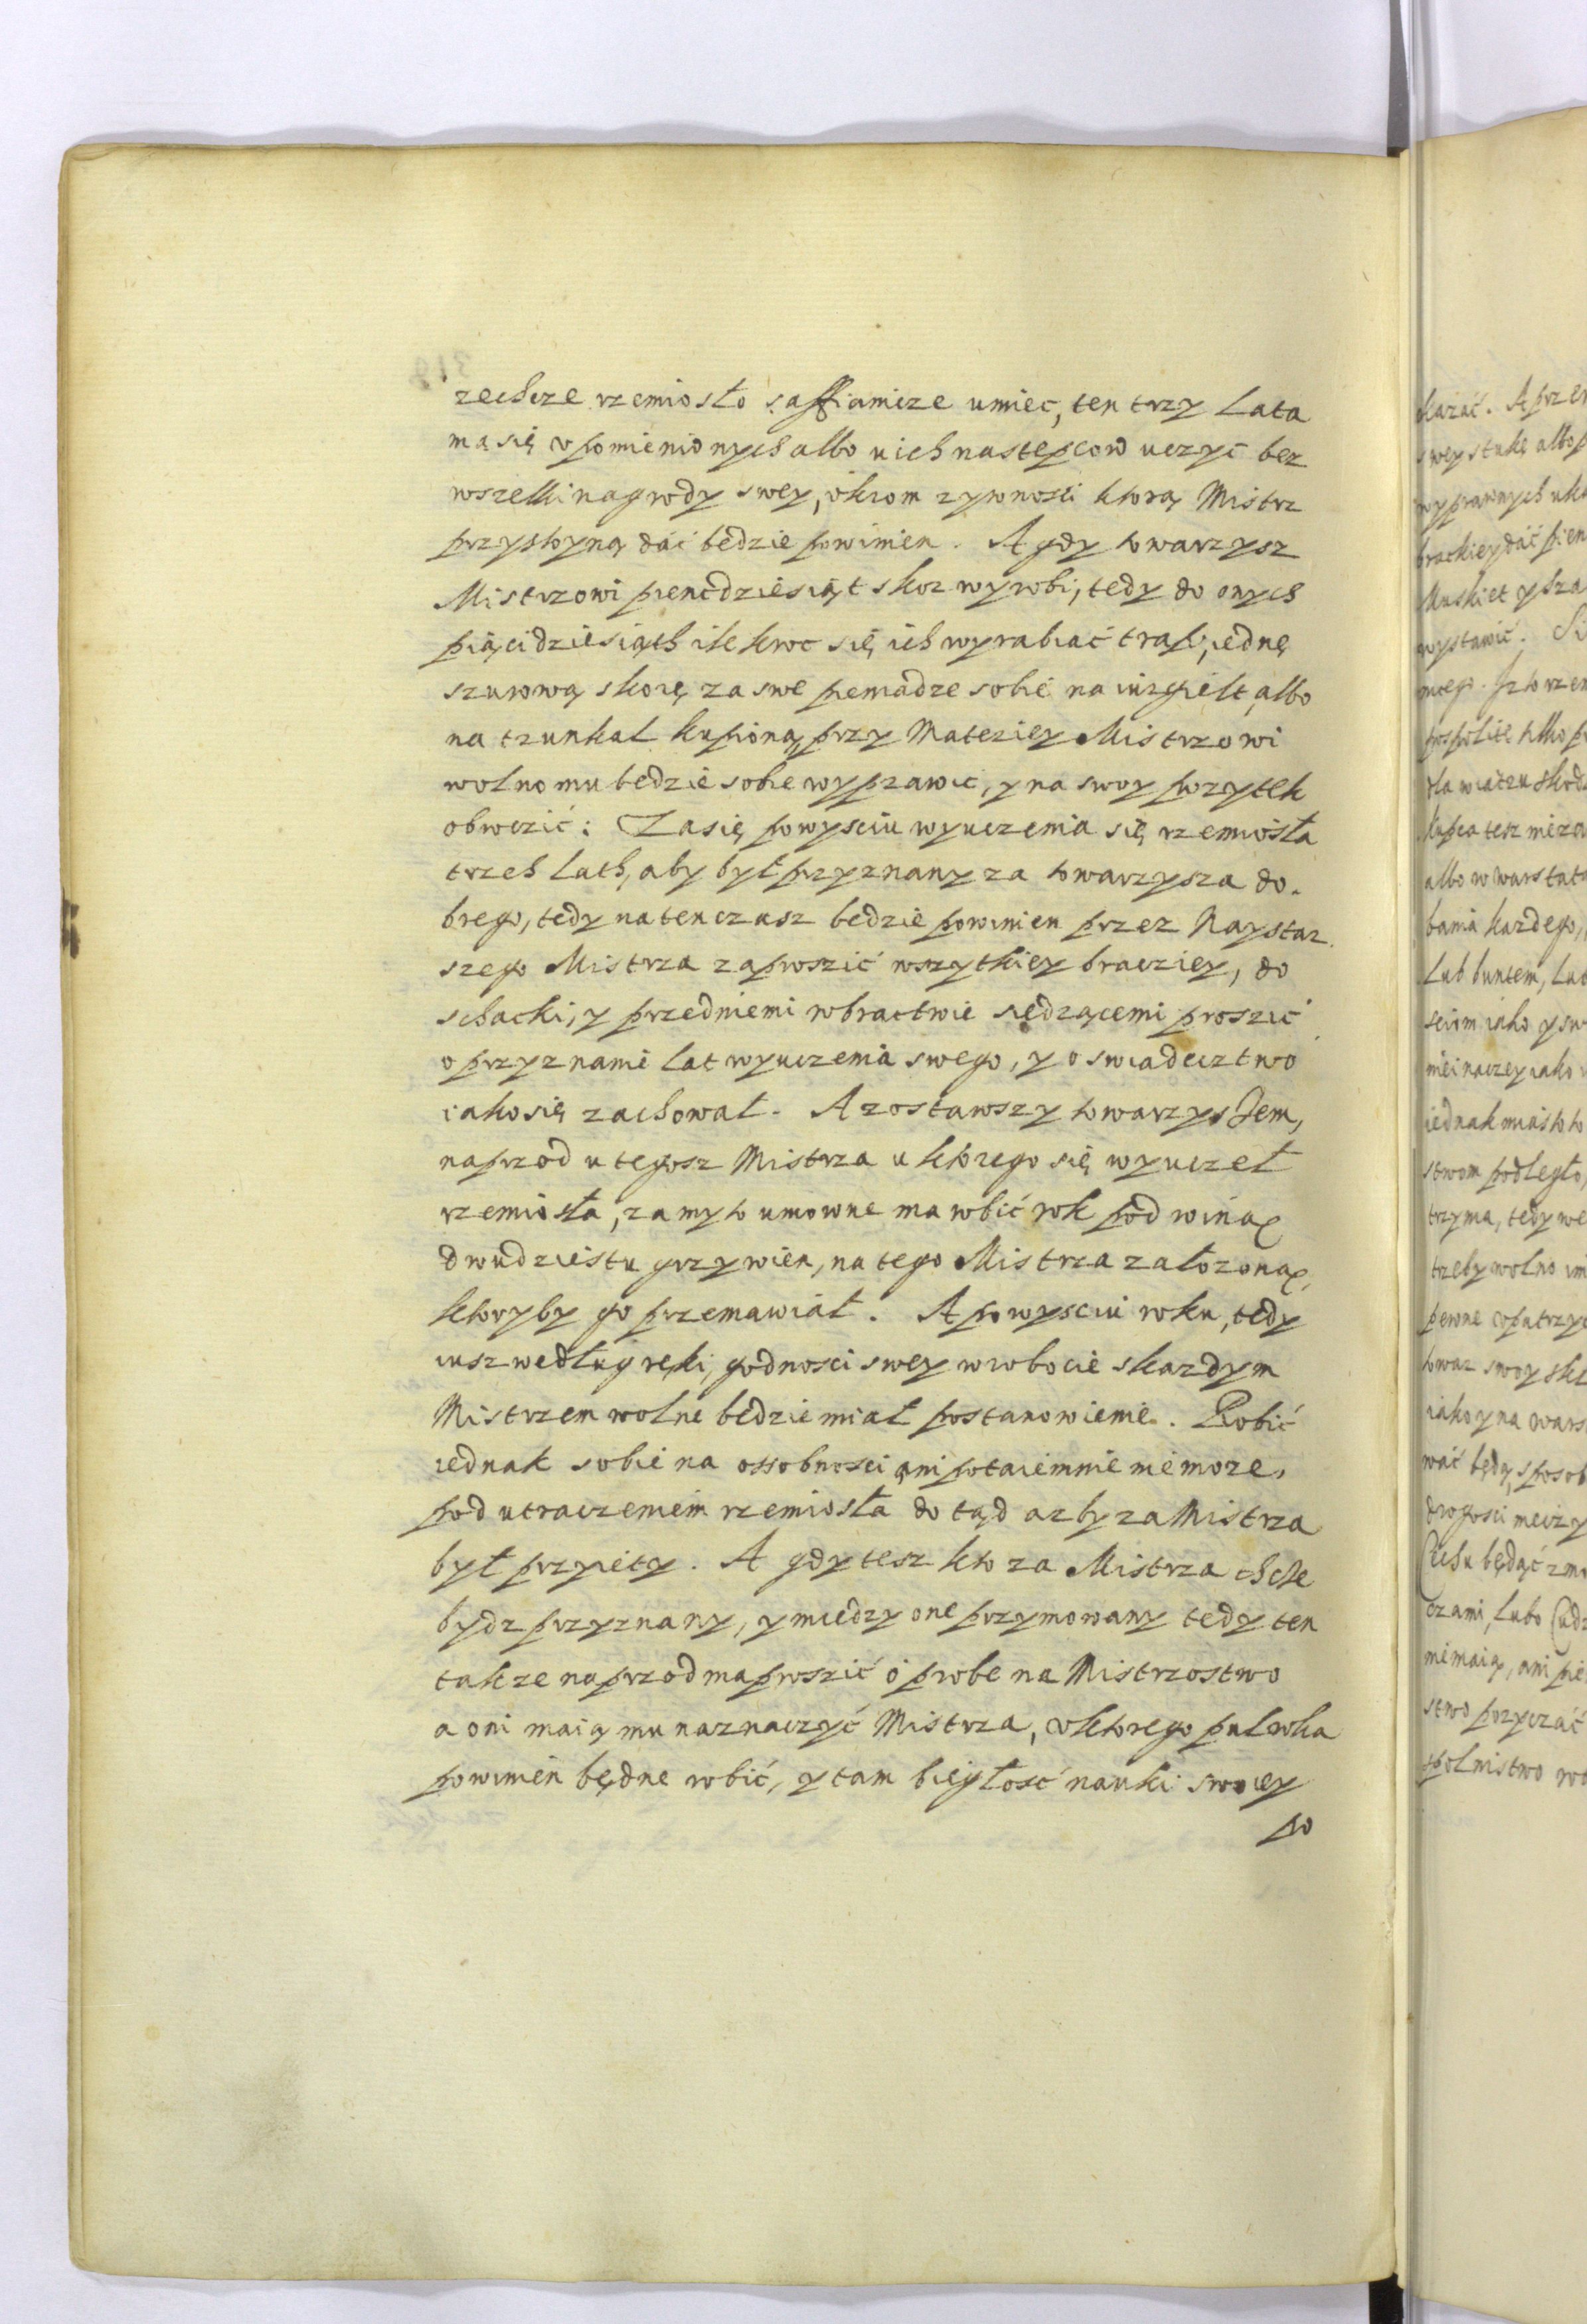 zechcze rzemiosło saffianicze umiec, ten trzy lata
ma się v pomienionych albo u ich nastepcow uczyć bez
wszelki nagrody swey, okrom zywnosci ktorą Mistrz
przystoyną dać bedzie powinien. A gdy towarzysz
Mistrzowi piencdziesiąt skor wyrobi, tedy do onych
piącidziesiąth ile kroc się ich wyrabiać trafi, iednę
szurową skorę za swe pieniadze sobie na iurgielt, albo
na trunkal kupioną, przy Materiey Mistrzowi
wolno mu bedzie sobie wyprawic, y na swoy pozytek
obroczić: Zasię po wysciu wyuczenia się rzemiosła
trzech lath, aby był przyznany za towarzysza do-
brego, tedy na ten czasz bedzie powinien przez Naystar
szego Mistrza zaproszić wszytkiey bracziey, do
schacki, y przedniemi w bractwie siędzącemi proszić
o przyznanie lat wyuczenia swego, y o swiadecztwo
iako się zachował. A zostawszy towarzyszem,
naprzod u tegosz Mistrza u ktorego się wyuczeł
rzemiosła, za myto umowne ma robić rok pod winą
dwudziestu grzywien, na tego Mistrza załozoną,
ktoryby go przemawiał. A po wysciu roku, tedy
iusz według ręki, godnosci swey w robocie skazdym
Mistrzem wolne bedzie miał postanowienie. Robić
iednak sobie na ossobnosci ani potaiemnie nie moze,
pod utraczeniem rzemiosła do tąd azby za Mistrza
był przyiety. A gdy tesz kto za Mistrza chce
bydz przyznany, y miedzy one przymowany tedy ten
takze naprzod ma proszić o probe na Mistrzostwo
a oni maią mu naznaczyć Mistrza, v ktorego pul roka
powinien będne robić, y tam biegłość nauki swoiey
po
kazać. A przer
swey stukę albo p
wyprawnych uka
brackiey dać pien
Muskiet y sza
wystawić. Si
pospolite tilko p
kupca tesz nie
albo w warstat
bania kazdego,
Lub buntem, Lub
sciom iako y sw
nie inaczey iako
iednak miasto
stwom podległo,
trzyma, tedy we
trzeby wolno im
pewne opatrzy
towar swoy
iako y na wars
wać będą, sposob
drogosci
Cechu będąć zmo
czami, Lubo Cudz
nie maią, ani pie
stwo pozyczać
spolnistwo